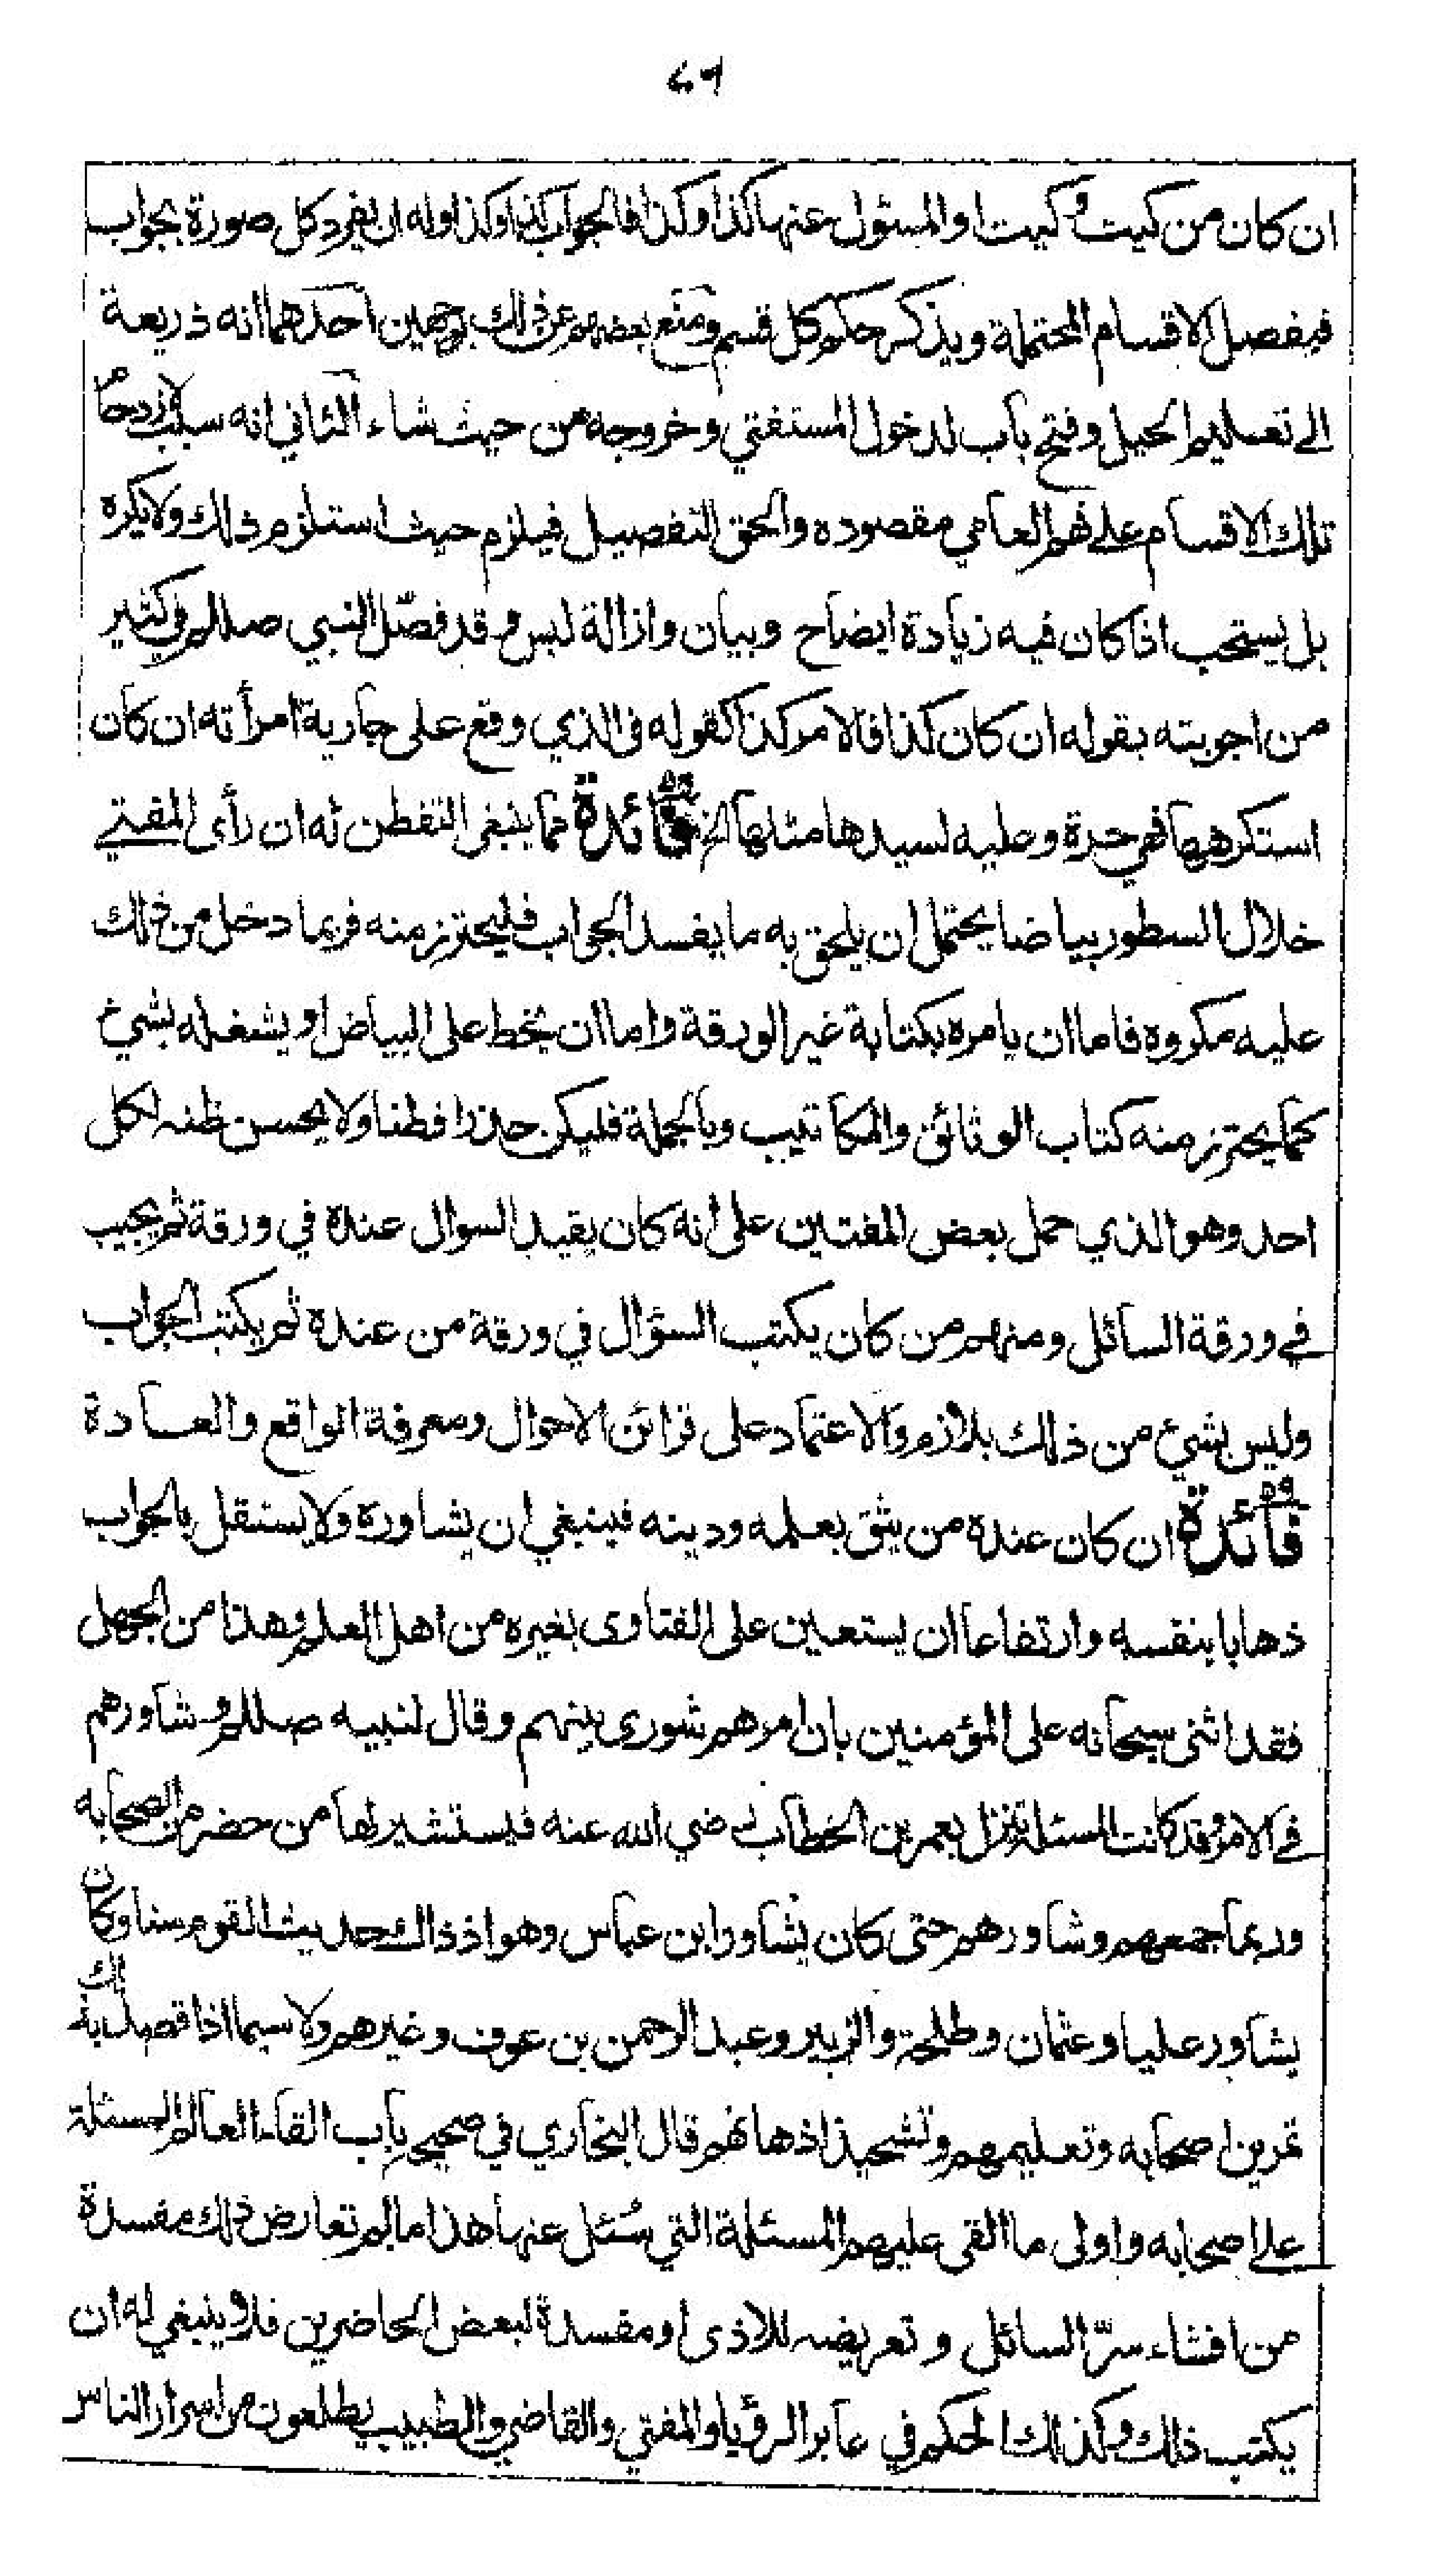 ٤٦
ان كان من كيت وكيت او المسئول عنها كذا وكذا فالجواب كذا وكذا وله ان يفرد كل صورة بجواب
فيفصل الاقسام المحتملة ويذكر حكم كل قسم ومنع بعضهم عن ذلك بوجهين احدهما انه ذريعة
الى تعليم الحيل وفتح باب لدخول المستفتي وخروجه من حيث شاء الثاني انه سبب لازدحام
تلك الاقسام على فهم العامي مقصوده والحق التفصيل فيلزم حيث استلزم ذلك ولا يكره
بل يستحب اذا كان فيه زيادة ايضاح وبيان وازالة لبس وقد فصّل النبي صللم في كثير
من اجوبته بقوله ان كان كذا فالامر كذا كقوله في الذي وقع على جارية امرأته ان كان
استكرهها فهي حرة وعليه لسيدها مثلها الخ فائدة مما ينبغي التفطن له ان رأى المفتي
خلال السطور بياضا يحتمل ان يلحق به ما يفسد الجواب فليحترز منه فربما دخل من ذلك
عليه مكروه فاما ان يامره بكتابة غير الورقة واما ان يخط على البياض او يشغله بشيئ
كما يحترز منه كتاب الوثائق والمكاتيب وبالجملة فليكن حذرا فطنا ولا يحسن ظنه لكل
احد وهو الذي حمل بعض المفتين على انه كان يقيد السوال عنده في ورقة ثم يجيب
في ورقة السائل ومنهم من كان يكتب السؤال في ورقة من عنده ثم يكتب الجواب
وليس بشيئ من ذلك بلازم والاعتماد على قرائن الاحوال ومعرفة الواقع والعادة
فائدة ان كان عنده من يثق بعلمه ودينه فينبغي ان يشاوره ولا يستقل بالجواب
ذهابا بنفسه وارتفاعا ان يستعين على الفتاوى بغيره من اهل العلم وهذا من الجهل
فقد اثنى سبحانه على المؤمنين بان امرهم شورى بينهم وقال لنبيه صللم وشاورهم
في الامر وقد كانت المسئلة تنزل بعمر بن الخطاب رضي الله عنه فيستشير لها من حضر من الصحابه
وربما جمعهم وشاورهم حتى كان يشاور ابن عباس وهو اذ ذاك حديث القوم سنا وكان
يشاور عليا وعثمان وطلحة والزبير وعبد الرحمن بن عوف وغيرهم ولا سيما اذا قصد بذلك
تمرين اصحابه وتعليمهم وتشحيذ اذهانهم قال البخاري في صحيحه باب القاء العالم المسئلة
على اصحابه واولى ما القى عليهم المسئلة التي سُئل عنها هذا ما لم تعارض ذلك مفسدة
من افشاء سرّ السائل و تعريضه للاذى او مفسدة لبعض الحاضرين فلا ينبغي له ان
يكتب ذلك وكذلك الحكم في عابر الرؤيا والمفتي والقاضي والطبيب يطلعون من اسرار الناس